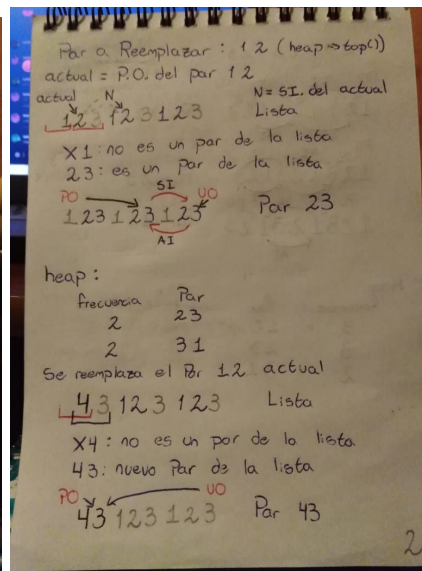 Par a Reemplazar: 1 2 (heap→top())
actual = P.O. del par 1 2
actual N N = SI. del actual
1 2 3 1 2 3 1 2 3 Lista
X1: no es un par de la lista
23: es un Par de la lista
PO SI UO
1 2 3 1 2 3 1 2 3 Par 23
AI
heap:
frecuencia Par
2 23
2 31
Se reemplaza el Par 12 actual
4 3 1 2 3 1 2 3 Lista
X4: no es un par de la lista
43: nuevo Par de la lista
PO UO
4 3 1 2 3 1 2 3 Par 43
2